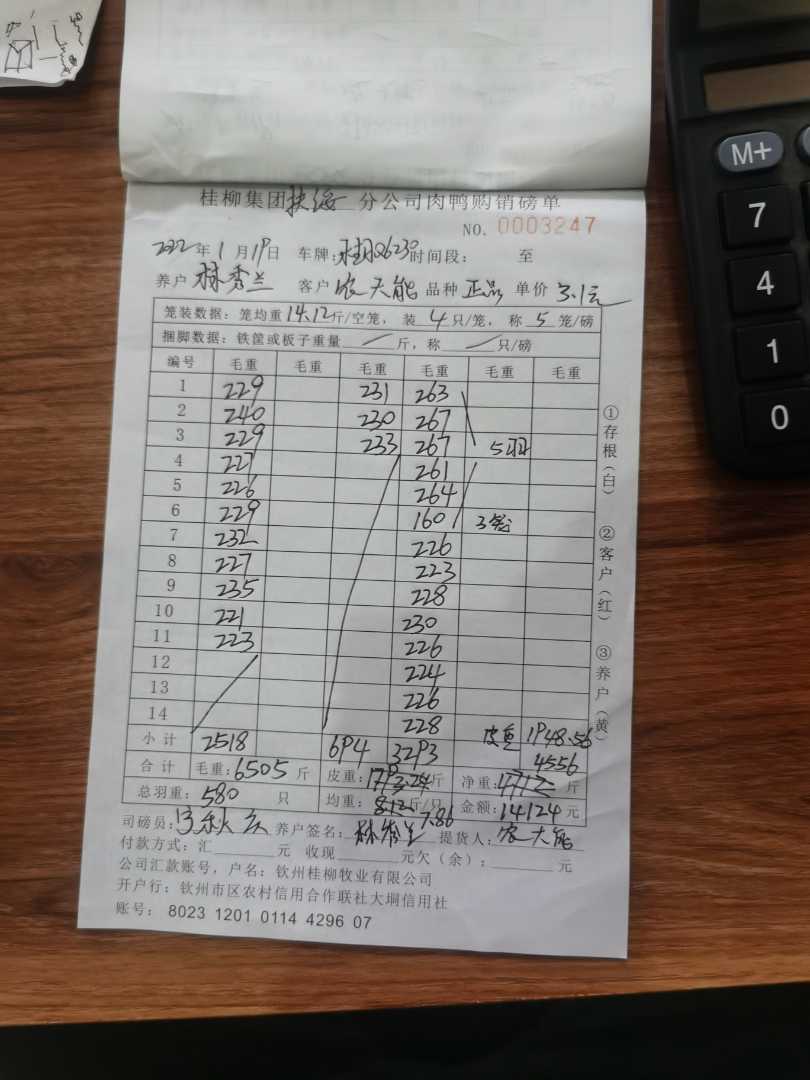 桂柳集团扶绥分公司肉鸭购销磅单
NO. 0003247
2022年1月19日 车牌: 时间段: 至
养户 林秀兰 客户 农大能 品种 正品 单价 3.1元
笼装数据: 笼均重14.12斤/空笼, 装 4 只/笼, 称 5 笼/磅
捆脚数据: 铁筐或板子重量 / 斤, 称 / 只/磅
编号 毛重 毛重 毛重 毛重 毛重 毛重
1 229 231 263
2 240 230 267
3 229 233 267 5羽
4 227 261
5 226 264
6 229 160 3笼
7 232 226
8 227 223
9 235 228
10 221 230
11 223 226
12 224
13 226
14 228 皮重 1948.56
小计 2518 694 3293 4556
合计 毛重: 6505 斤 皮重: 1793.24斤 净重: 4712 斤
总羽重: 580 只 均重: 8.12斤/只 7.86 金额: 14124 元
司磅员: 养户签名: 林秀兰 提货人: 农大能
付款方式: 汇 元 收现 元欠(余): 元
公司汇款账号, 户名: 钦州桂柳牧业有限公司
开户行: 钦州市区农村信用合作联社大垌信用社
账号: 8023 1201 0114 4296 07
①存根(白) ②客户(红) ③养户(黄)
M+
7
4
1
0